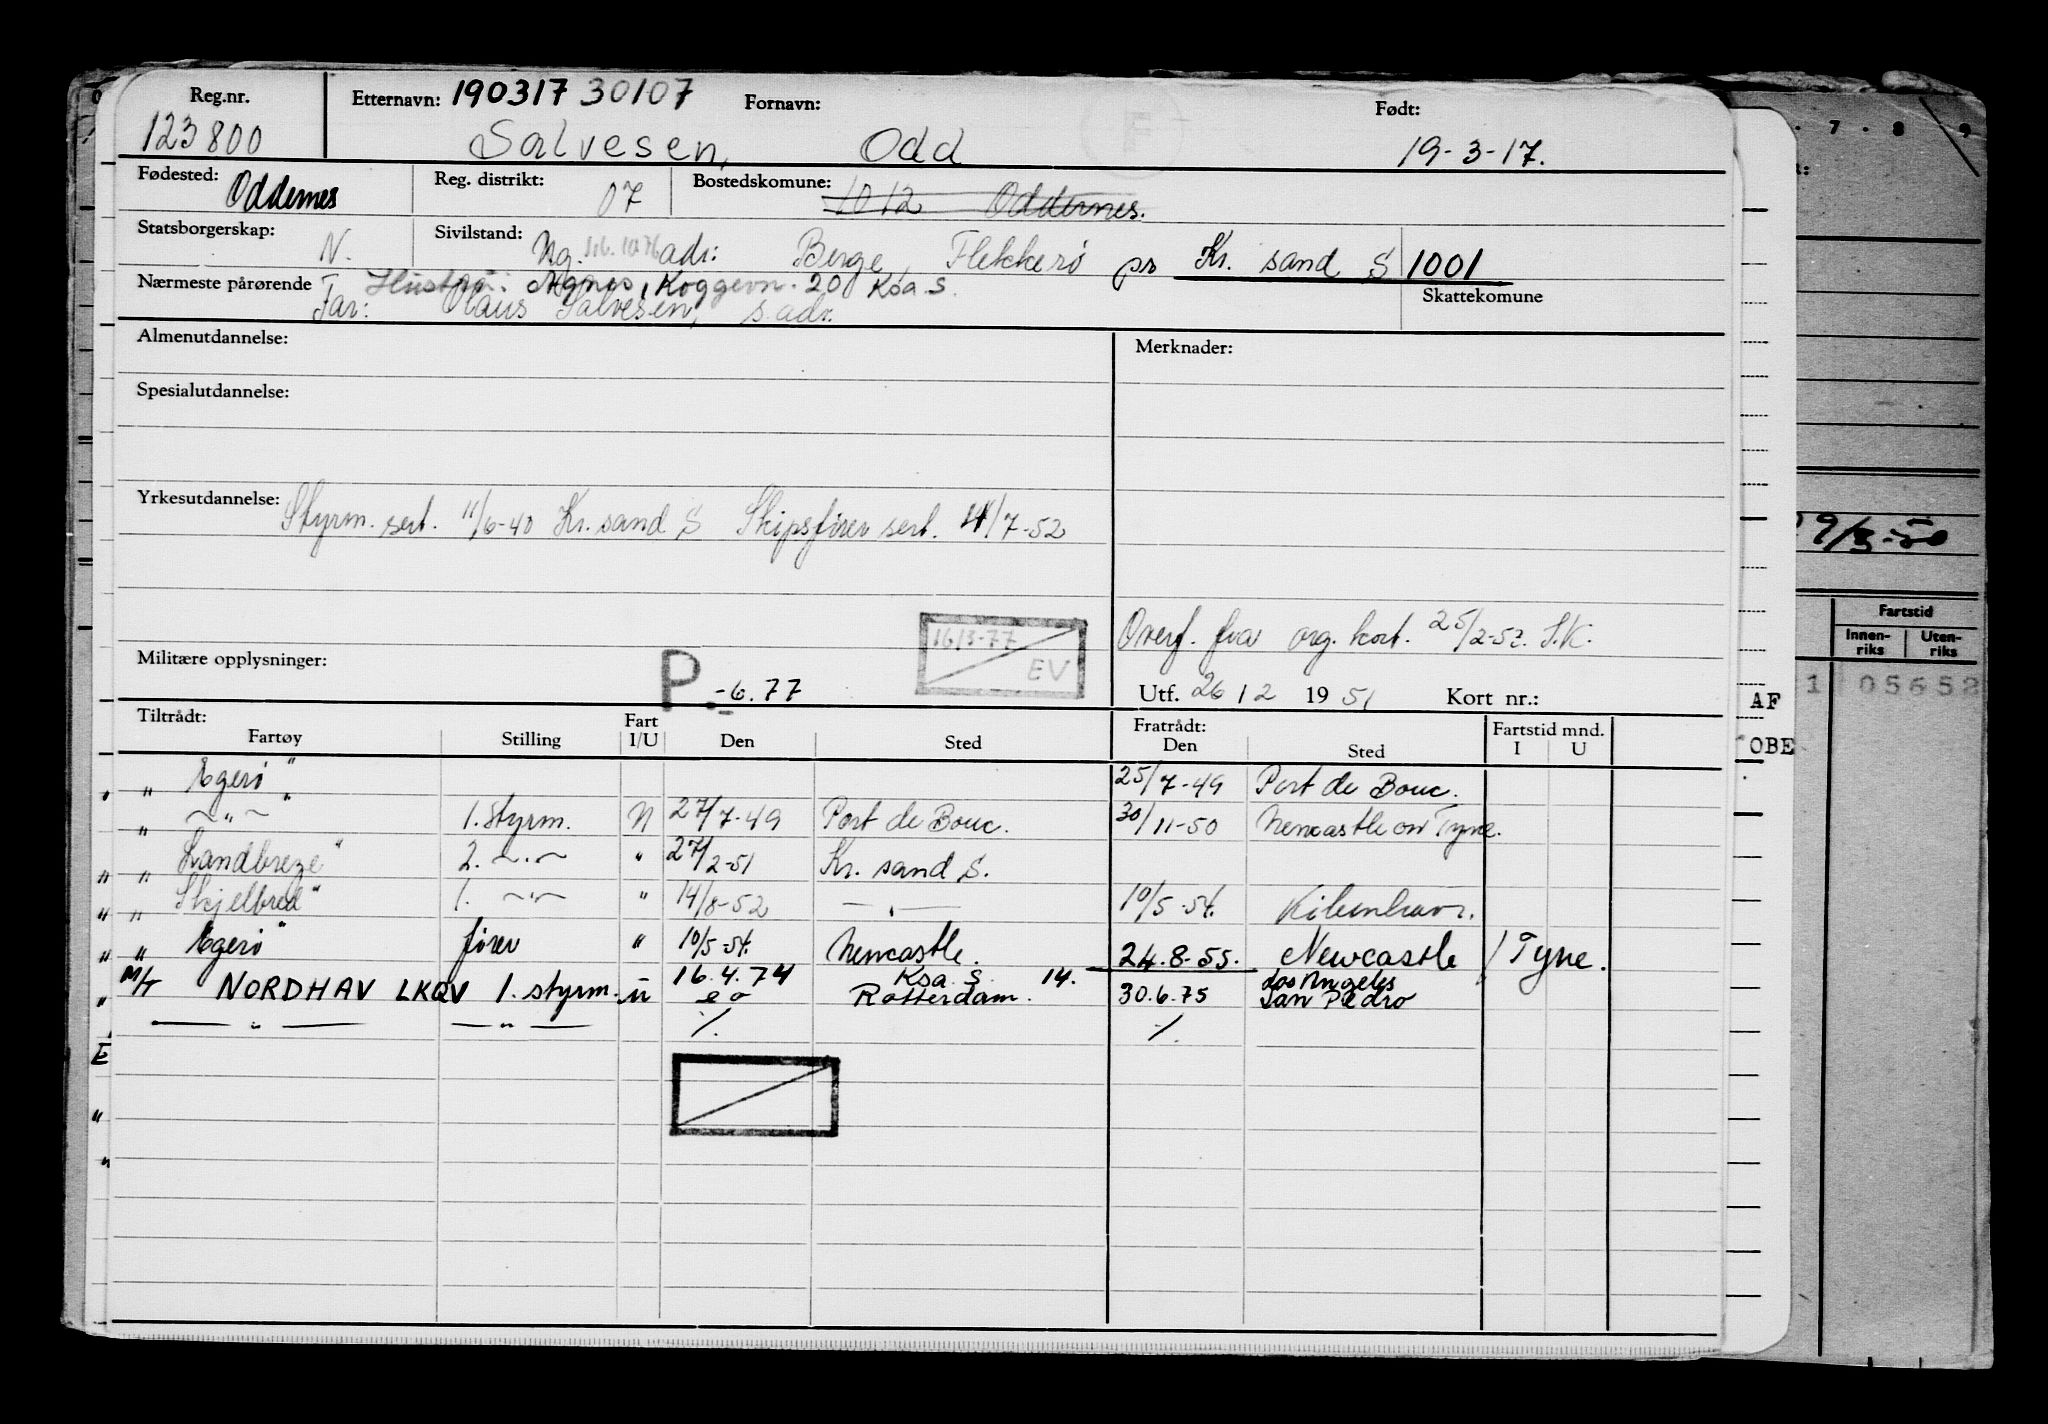 Reg.nr. Etternavn: 190317 30107 Fornavn: Født:
123800 Salvesen, Odd 19-3-17.
Fødested: Oddernes Reg. distrikt: 07 Bostedskomune: 1012 Oddernes.
Statsborgerskap: N. Sivilstand: Ug. adr: Berge, Flekkerø pr Kr. sand S 1001
Nærmeste pårørende Hustru: Agnes, Koggevn. 20 Ksa. S. Skattekomune
Far: Olaus Salvesen, s. adr.
Almenutdannelse: Merknader:
Spesialutdannelse:
Yrkesutdannelse: Styrm. sert. 11/6-40 Kr. sand S Skipsfører sert. 11/7-52
16/3-77
EV
Overf. fra org. kort. 25/2-52. S.K.
Militære opplysninger: P. -6.77
Utf. 26/2 1951 Kort nr.:
Tiltrådt: Fratrådt: Fartstid mnd.
Fartøy Stilling Fart I/U Den Sted Den Sted I U
" Egerø " 25/7-49 Port de Bouc.
" — " — " 1. styrm. N 27/7-49 Port de Bouc. 30/11-50 Newcastle on Tyne.
Landbreze " 2. — " — " 27/2-51 Kr. sand S.
" Skjelbred " 1. — " — " 14/8-52 — " — 10/5-54. København.
" Egerø " fører " 10/5-54. Newcastle. 24.8.55. Newcastle / Tyne.
M/T NORDHAV LKQV 1. styrm. u 16.4.74 Ksa. S. 14.
Rotterdam. 30.6.75 Los Angeles
San Pedro
— " — — " — ·/. ·/.
E
7 · 8 9
9/3-50
Fartstid
Innenriks Utenriks
1 05652
AF
OBE